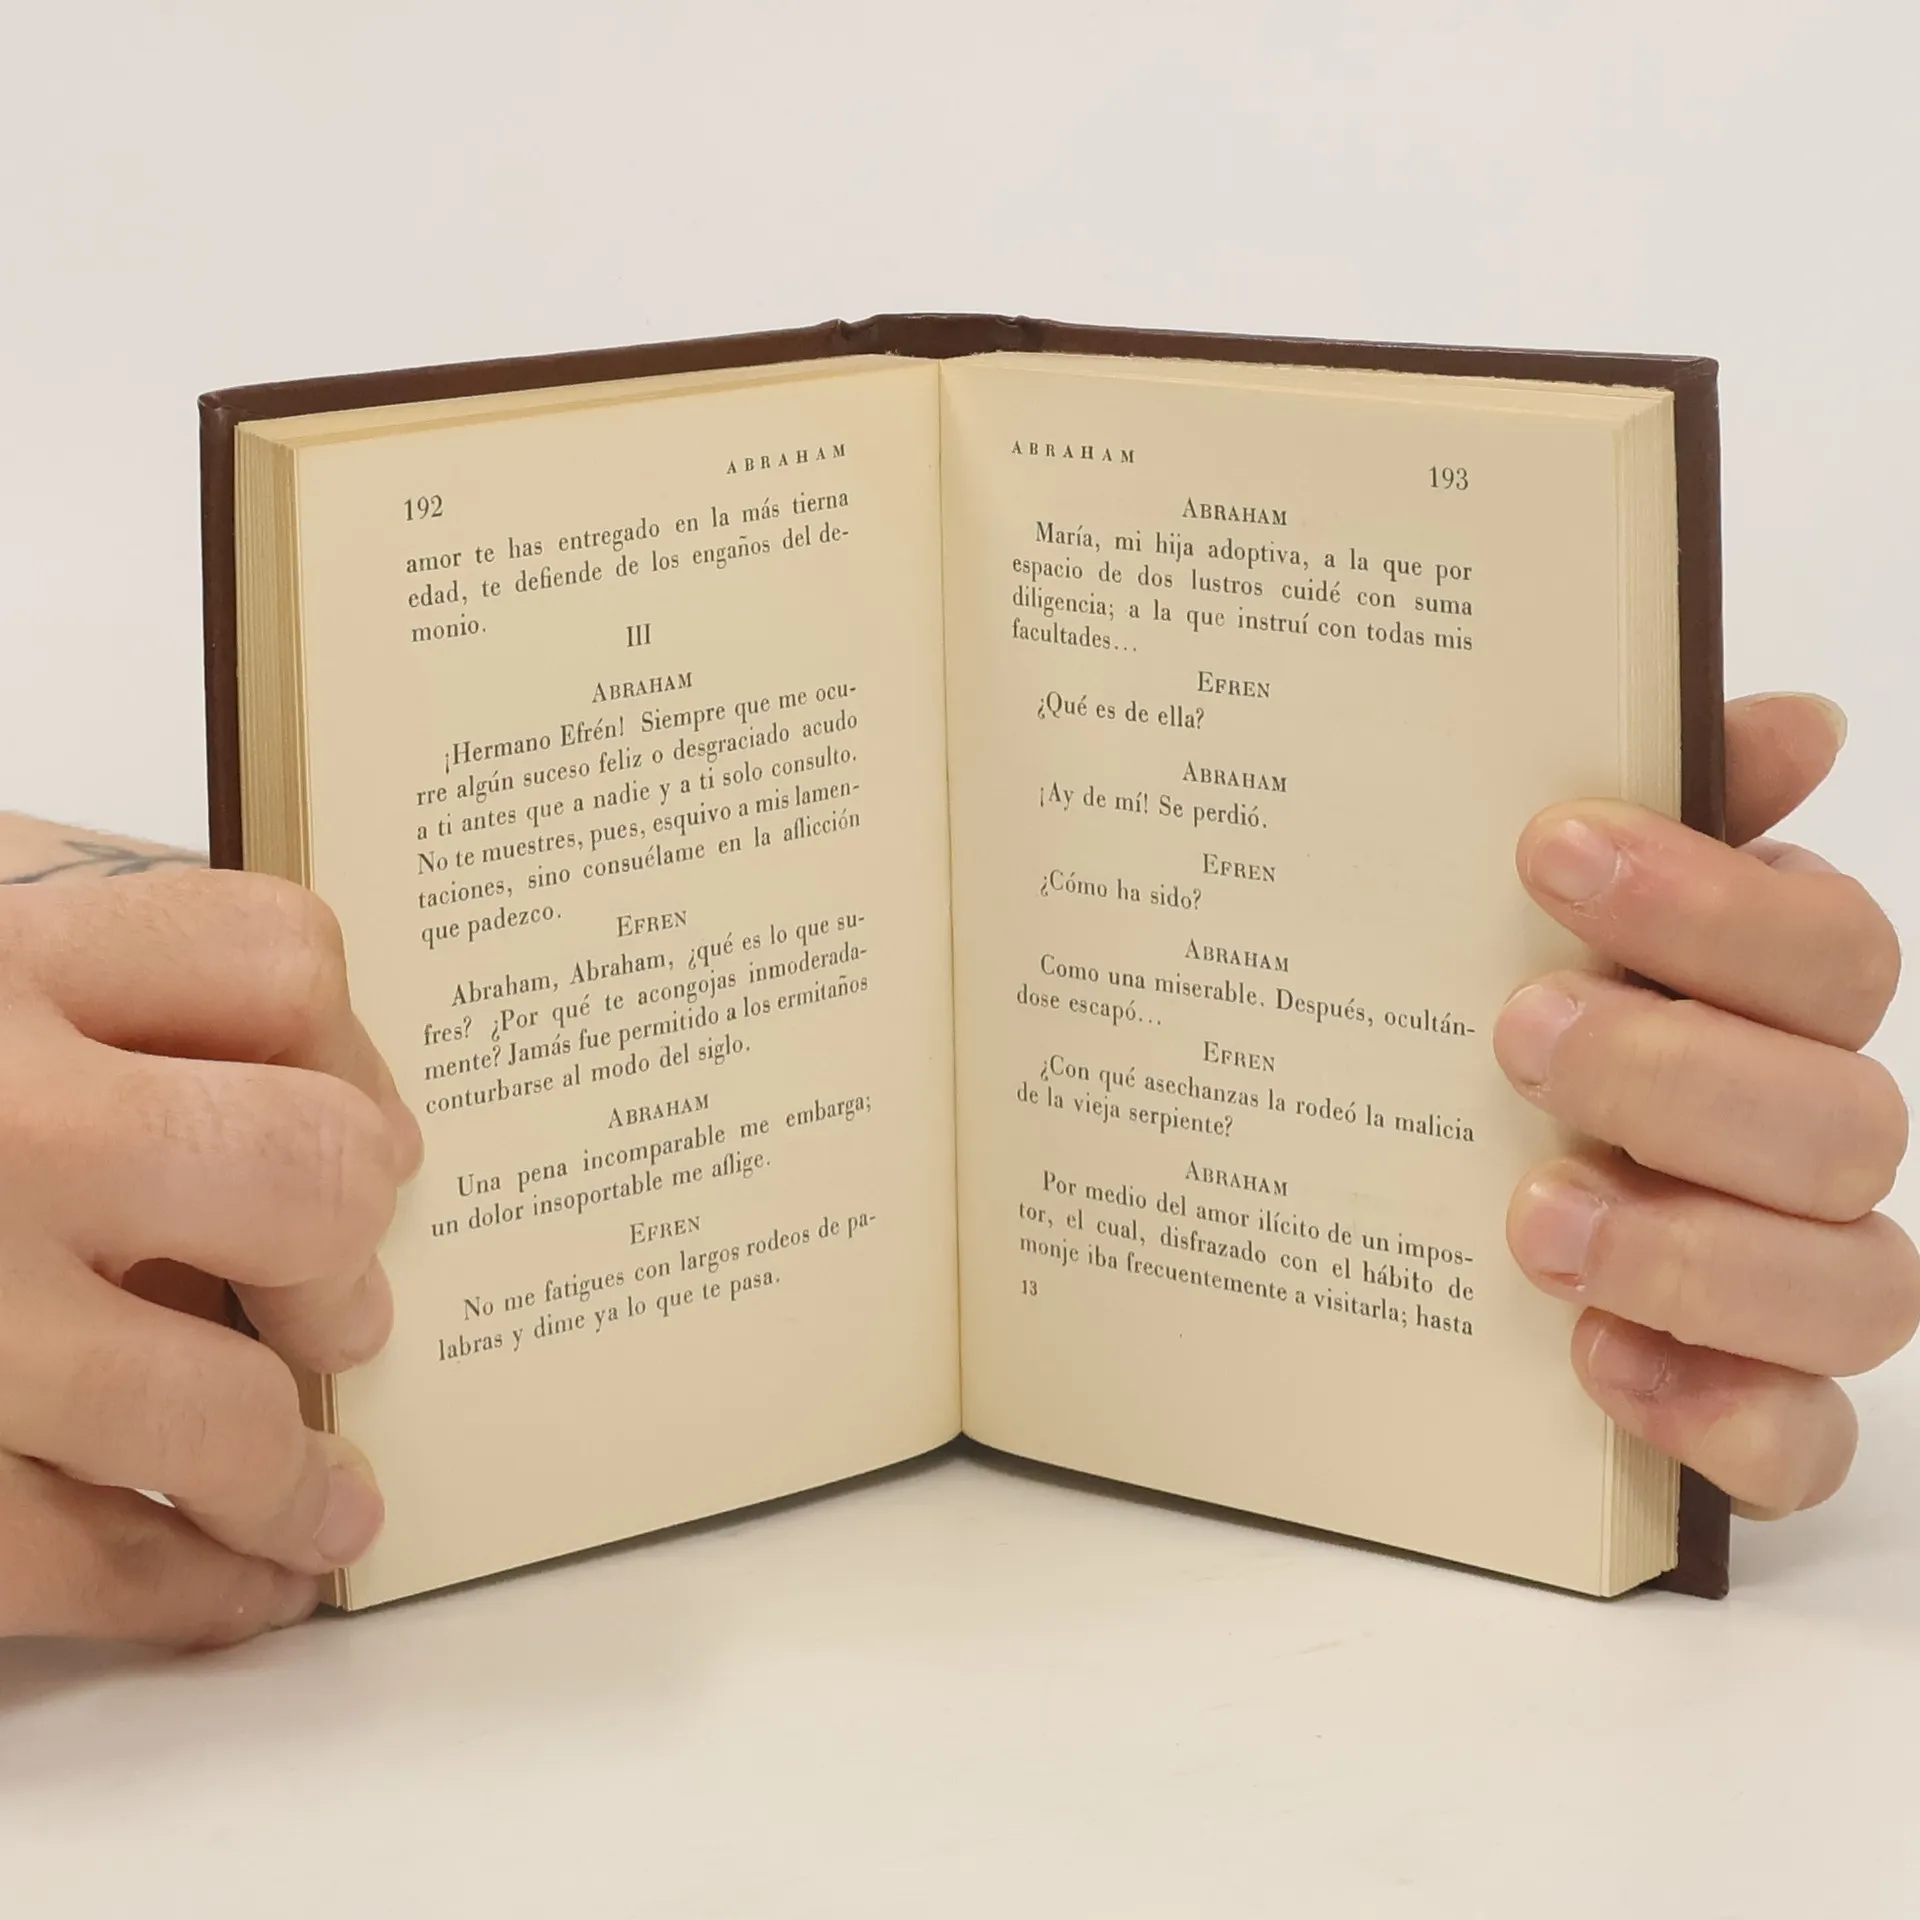 192
ABRAHAM
amor te has entregado en la más tierna
edad, te defiende de los engaños del de-
monio.
III
ABRAHAM
¡Hermano Efrén! Siempre que me ocu-
rre algún suceso feliz o desgraciado acudo
a ti antes que a nadie y a ti solo consulto.
No te muestres, pues, esquivo a mis lamen-
taciones, sino consuélame en la aflicción
que padezco.
EFREN
Abraham, Abraham, ¿qué es lo que su-
fres? ¿Por qué te acongojas inmoderada-
mente? Jamás fue permitido a los ermitaños
conturbarse al modo del siglo.
ABRAHAM
Una pena incomparable me embarga;
un dolor insoportable me aflige.
EFREN
No me fatigues con largos rodeos de pa-
labras y dime ya lo que te pasa.
ABRAHAM
193
ABRAHAM
María, mi hija adoptiva, a la que por
espacio de dos lustros cuidé con suma
diligencia; a la que instruí con todas mis
facultades...
EFREN
¿Qué es de ella?
ABRAHAM
¡Ay de mí! Se perdió.
EFREN
¿Cómo ha sido?
ABRAHAM
Como una miserable. Después, ocultán-
dose escapó...
EFREN
¿Con qué asechanzas la rodeó la malicia
de la vieja serpiente?
ABRAHAM
Por medio del amor ilícito de un impos-
tor, el cual, disfrazado con el hábito de
monje iba frecuentemente a visitarla; hasta
13